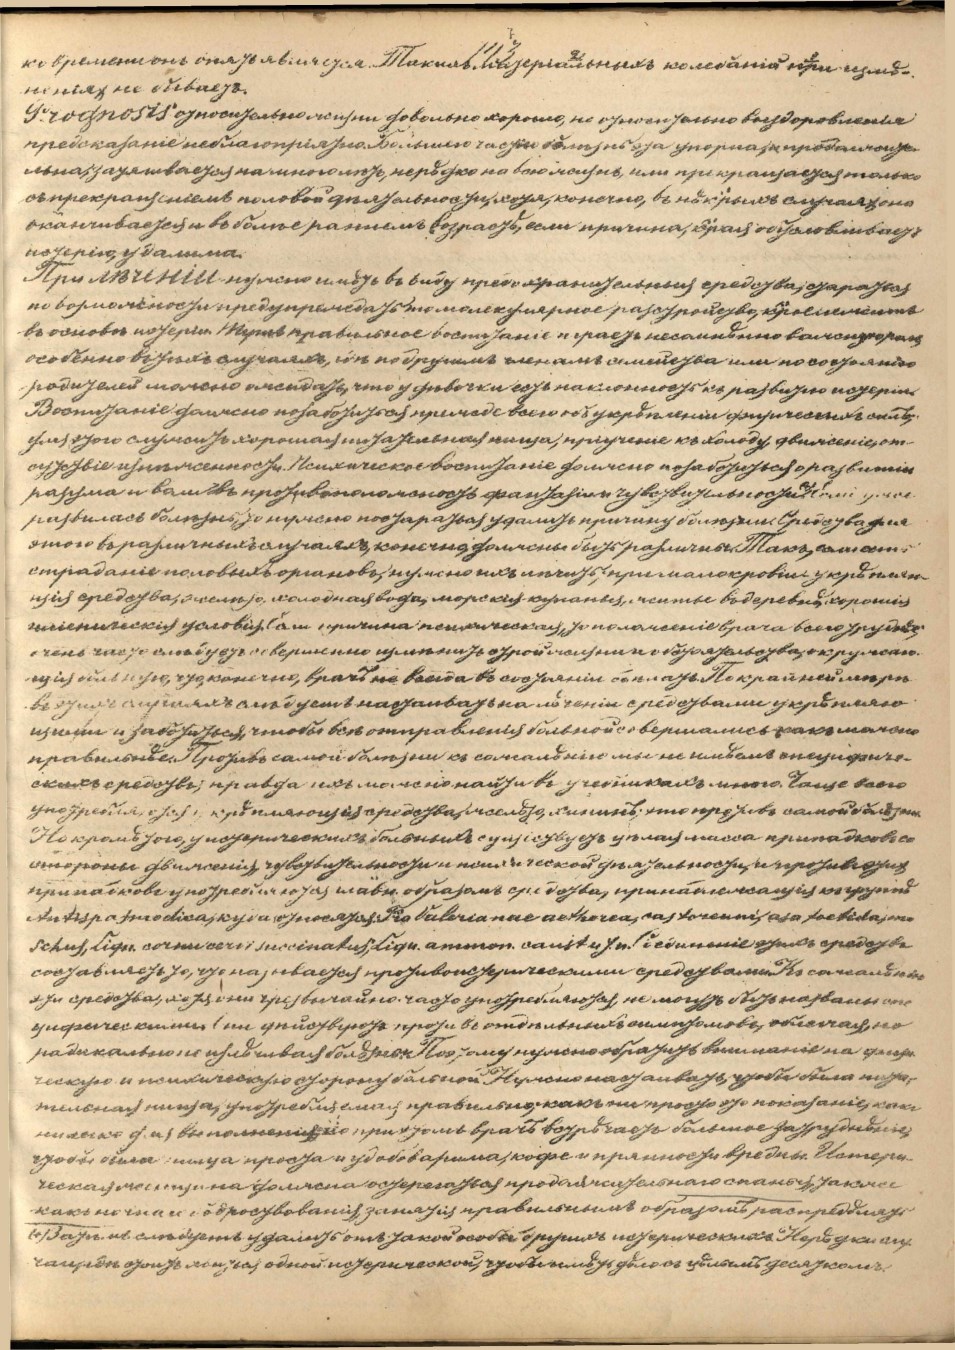 113
ко времени онъ опять является. Такихъ матеріальныхъ колебаній при измѣ-
неніяхъ не бываетъ.
Prognosis относительно жизни довольно хорошо, но относительно выздоровленія
предсказаніе неблагопріятно. Большею частію болѣзнь эта упорная и продолжите-
льна, затягивается на много лѣтъ, нерѣдко на всю жизнь, или прекращается только
съ прекращеніемъ половой дѣятельности, хотя, конечно, въ нѣк-рыхъ случаяхъ она
оканчивается и въ болѣе раннемъ возрастѣ, если причина, к-рая обусловливаетъ
истерію, удалима.
При лѣченіи нужно имѣть въ виду предохранительныя средства, стараться
по возможности предупреждать то молекулярное разстройство, к-рое лежитъ
въ основѣ истеріи. Тутъ правильное воспитаніе играетъ несомнѣнно важную роль
особенно въ тѣхъ случаяхъ, гдѣ по другимъ членамъ семейства или по состоянію
родителей можно ожидать, что у дѣвочки есть наклонность къ развитію истеріи.
Воспитаніе должно позаботиться прежде всего объ укрѣпленіи физическихъ силъ;
для этого служитъ хорошая питательная пища, пріученіе къ холоду, движеніе, от-
сутствіе изнѣженности. Психическое воспитаніе должно позаботиться о развитіи
разума и воли въ противоположность фантазіи и чувствительности. Если уже
развилась болѣзнь, то нужно постараться удалить причину болѣзни. Средства для
этого въ различныхъ случаяхъ, конечно, должны быть различны. Такъ, если есть
страданіе половыхъ органовъ, нужно ихъ лѣчить; при малокровіи укрѣпляю-
щія средства, желѣзо, холодная вода, морскія купанья, житье въ деревнѣ, хорошія
гигіеническія условія. Если причина психическая, то положеніе врача всего труднѣе;
очень часто слѣдуетъ совершенно измѣнить строй жизни и обстоятельства, окружаю-
щія больную, что, конечно, врачъ не всегда въ состояніи сдѣлать. По крайней мѣрѣ
въ этихъ случаяхъ слѣдуетъ настаивать на лѣченіи средствами укрѣпляю-
щими и заботиться, чтобы всѣ отправленія больной совершались какъ можно
правильнѣе. Противъ самой болѣзни къ сожалѣнію мы не имѣемъ специфиче-
скихъ средствъ; правда ихъ можно найти въ учебникахъ много. Чаще всего
употребляются укрѣпляющія средства, желѣзо, хининъ, это противъ самой болѣзни.
Но кромѣ того, у истерическихъ больныхъ существуетъ цѣлая масса припадковъ со
стороны движенія, чувствительности и психической дѣятельности, и противъ этихъ
припадковъ употребляются главн. образомъ средства, принадлежащія къ группѣ
Antispasmodica, куда относятся: T-ra Valerianae aetherea, castoreum, asa foetida, mo-
schus, Liqu. cornu cervi succinatus, Liqu. ammon. caust и т.п. Соединеніе этихъ средствъ
составляетъ то, что называется противоистерическими средствами. Къ сожалѣнію
эти средства, хотя они чрезвычайно часто употребляются, не могутъ быть названы спе-
цифическими. Они дѣйствуютъ противъ отдѣльныхъ симптомовъ, облегчая, но
радикально не излѣчивая болѣзни. Поэтому нужно обратить вниманіе на физи-
ческую и психическую сторону больной. Нужно настаивать, чтобы была пита-
тельная пища, употребляемая правильно; какъ ни просто это показаніе, какъ
ни легко для выполненія, но при этомъ врачъ встрѣчаетъ большое затрудненіе;
чтобы была пища проста и удобоварима, кофе и пряности вредны. Истери-
ческая женщина должна остерегаться продолжительнаго спанья, также
какъ ночнаго бодрствованія, занятія правильнымъ образомъ распредѣлять.
Затѣмъ слѣдуетъ удалить отъ такой особы другихъ истерическихъ. Нерѣдки слу-
чаи, гдѣ стоитъ появиться одной истерической, чтобы имѣть дѣло съ цѣлымъ десяткомъ.